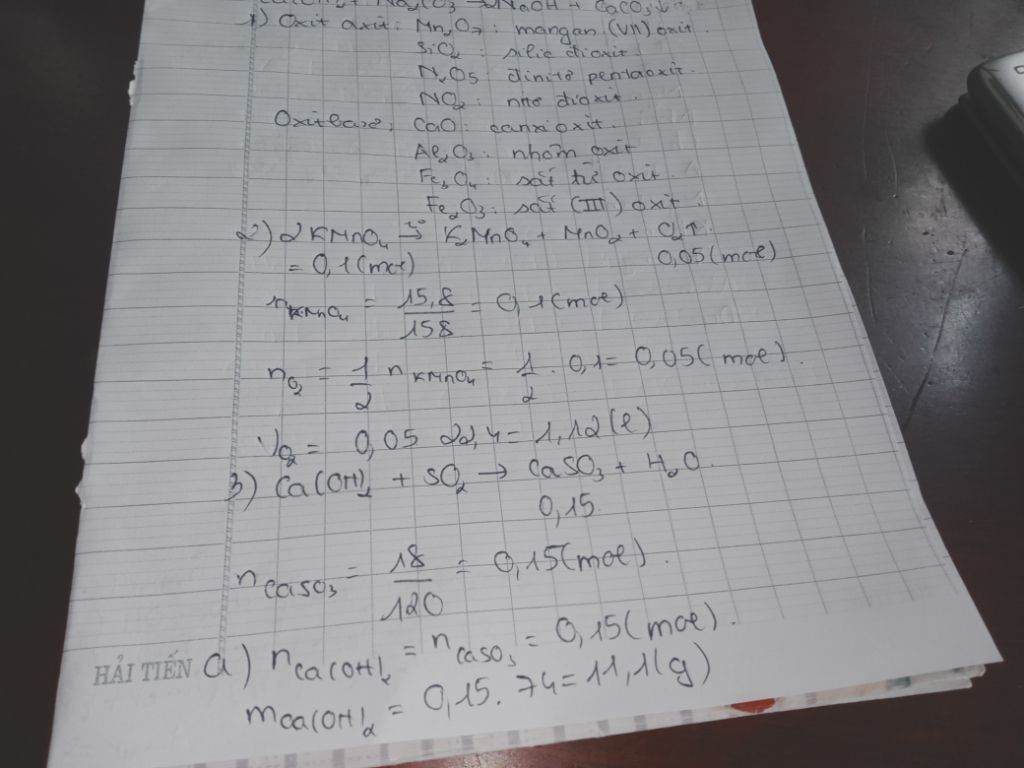 Na₂CO₃ → NaOH + CaCO₃↓
1) Oxit axit: Mn₂O₇: mangan (VII) oxit.
SiO₂: silic đioxit.
N₂O₅: đinitơ pentaoxit.
NO₂: nitơ đioxit.
Oxit bazơ: CaO: canxi oxit.
Al₂O₃: nhôm oxit
Fe₃O₄: sắt từ oxit.
Fe₂O₃: sắt (III) oxit.
2) 2KMnO₄ →t° K₂MnO₄ + MnO₂ + O₂↑
= 0,1 (mol) 0,05 (mol)
nKMnO₄ = 15,8/158 = 0,1 (mol)
nO₂ = 1/2 nKMnO₄ = 1/2 . 0,1 = 0,05 (mol).
VO₂ = 0,05 22,4 = 1,12 (l)
3) Ca(OH)₂ + SO₂ → CaSO₃ + H₂O.
0,15
nCaSO₃ = 18/120 = 0,15 (mol).
HẢI TIẾN a) nCa(OH)₂ = nCaSO₃ = 0,15 (mol).
mCa(OH)₂ = 0,15. 74 = 11,1 (g)